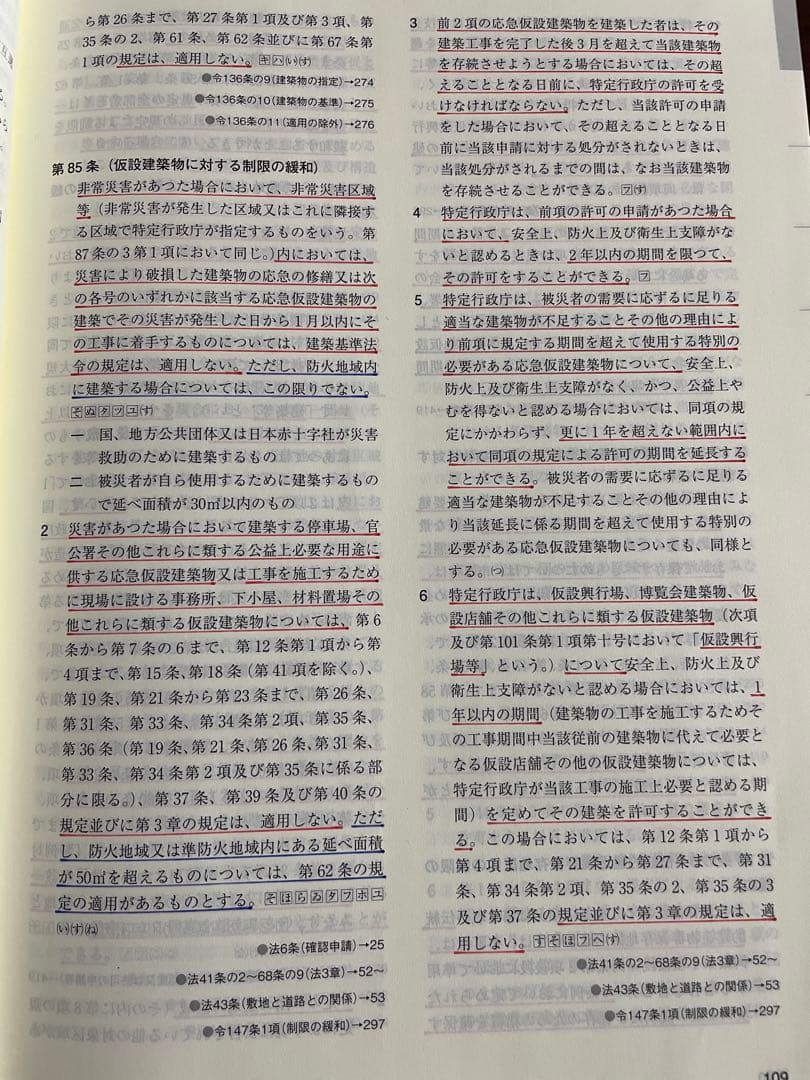 ら第26条まで、第27条第1項及び第3項、第
35条の2、第61条、第62条並びに第67条第
1項の規定は、適用しない。キハ(い)(す)
●令136条の9(建築物の指定)→274
●令136条の10(建築物の基準)→275
●令136条の11(適用の除外)→276
第85条(仮設建築物に対する制限の緩和)
非常災害があつた場合において、非常災害区域
等(非常災害が発生した区域又はこれに隣接す
る区域で特定行政庁が指定するものをいう。第
87条の3第1項において同じ。)内においては、
災害により破損した建築物の応急の修繕又は次
の各号のいずれかに該当する応急仮設建築物の
建築でその災害が発生した日から1月以内にそ
の工事に着手するものについては、建築基準法
令の規定は、適用しない。ただし、防火地域内
に建築する場合については、この限りでない。
そぬタフユ(す)
一 国、地方公共団体又は日本赤十字社が災害
救助のために建築するもの
二 被災者が自ら使用するために建築するもの
で延べ面積が30㎡以内のもの
2 災害があつた場合において建築する停車場、官
公署その他これらに類する公益上必要な用途に
供する応急仮設建築物又は工事を施工するため
に現場に設ける事務所、下小屋、材料置場その
他これらに類する仮設建築物については、第6
条から第7条の6まで、第12条第1項から第
4項まで、第15条、第18条(第41項を除く。)、
第19条、第21条から第23条まで、第26条、
第31条、第33条、第34条第2項、第35条、
第36条(第19条、第21条、第26条、第31条、
第33条、第34条第2項及び第35条に係る部
分に限る。)、第37条、第39条及び第40条の
規定並びに第3章の規定は、適用しない。ただ
し、防火地域又は準防火地域内にある延べ面積
が50㎡を超えるものについては、第62条の規
定の適用があるものとする。そほらゐタフホユ
(い)(す)(ね)
●法6条(確認申請)→25
●法41条の2〜68条の9(法3章)→52〜
●法43条(敷地と道路との関係)→53
●令147条1項(制限の緩和)→297
3 前2項の応急仮設建築物を建築した者は、その
建築工事を完了した後3月を超えて当該建築物
を存続させようとする場合においては、その超
えることとなる日前に、特定行政庁の許可を受
けなければならない。ただし、当該許可の申請
をした場合において、その超えることとなる日
前に当該申請に対する処分がされないときは、
当該処分がされるまでの間は、なお当該建築物
を存続させることができる。フ(す)
4 特定行政庁は、前項の許可の申請があつた場合
において、安全上、防火上及び衛生上支障がな
いと認めるときは、2年以内の期間を限つて、
その許可をすることができる。フ
5 特定行政庁は、被災者の需要に応ずるに足りる
適当な建築物が不足することその他の理由によ
り前項に規定する期間を超えて使用する特別の
必要がある応急仮設建築物について、安全上、
防火上及び衛生上支障がなく、かつ、公益上や
むを得ないと認める場合においては、同項の規
定にかかわらず、更に1年を超えない範囲内に
おいて同項の規定による許可の期間を延長する
ことができる。被災者の需要に応ずるに足りる
適当な建築物が不足することその他の理由によ
り当該延長に係る期間を超えて使用する特別の
必要がある応急仮設建築物についても、同様と
する。(つ)
6 特定行政庁は、仮設興行場、博覧会建築物、仮
設店舗その他これらに類する仮設建築物(次項
及び第101条第1項第十号において「仮設興行
場等」という。)について安全上、防火上及び
衛生上支障がないと認める場合においては、1
年以内の期間(建築物の工事を施工するためそ
の工事期間中当該従前の建築物に代えて必要と
なる仮設店舗その他の仮設建築物については、
特定行政庁が当該工事の施工上必要と認める期
間)を定めてその建築を許可することができ
る。この場合においては、第12条第1項から
第4項まで、第21条から第27条まで、第31
条、第34条第2項、第35条の2、第35条の3
及び第37条の規定並びに第3章の規定は、適
用しない。すそほフヘ(す)
●法41条の2〜68条の9(法3章)→52〜
●法43条(敷地と道路との関係)→53
●令147条1項(制限の緩和)→297
109